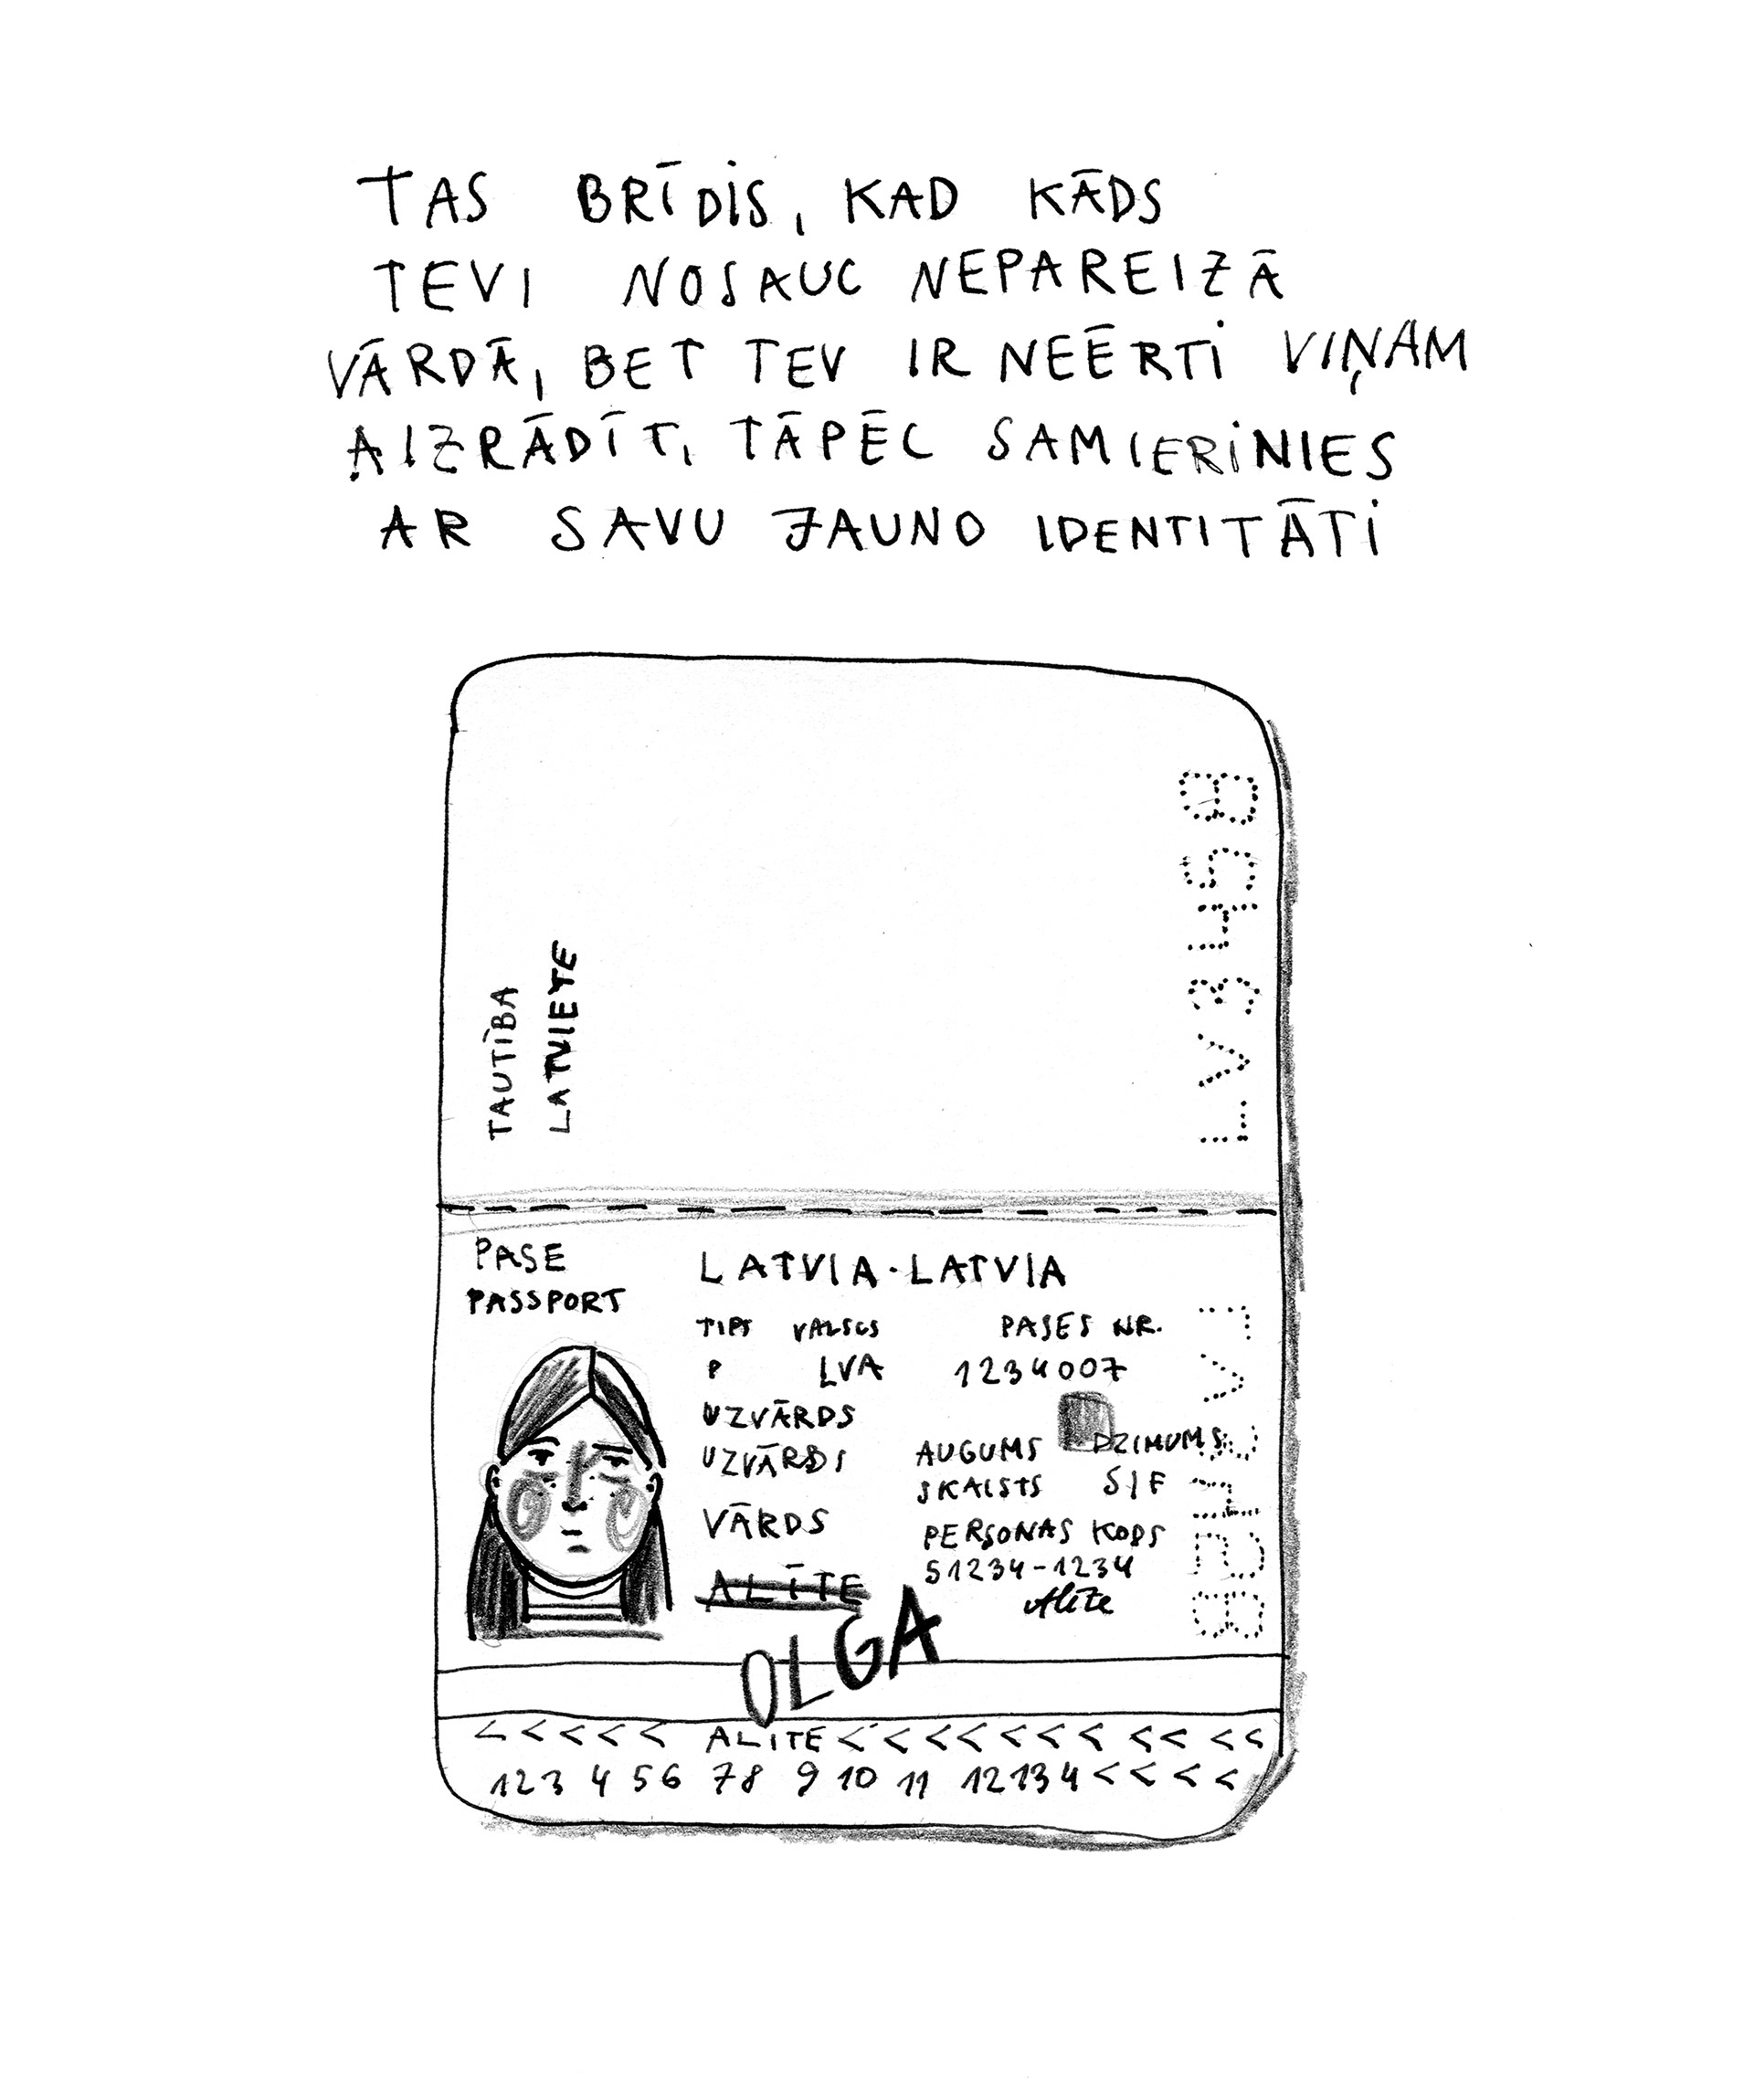 TAS BRĪDIS, KAD KĀDS
TEVI NOSAUC NEPAREIZĀ
VĀRDĀ, BET TEV IR NEĒRTI VIŅAM
AIZRĀDĪT, TĀPĒC SAMIERINIES
AR SAVU JAUNO IDENTITĀTI
TAUTĪBA
LATVIETE
LV3458
PASE
PASSPORT
LATVIA·LATVIA
TIPS VALSTS PASES NR.
P LVA 1234007
UZVĀRDS
UZVĀRDS
AUGUMS DZIMUMS
SKAISTS S/F
VĀRDS
ALĪTE
OLGA
PERSONAS KODS
51234-1234
Alīte
<<<<< ALITE<<<<<<<<<<<
123 4 56 78 9 10 11 12 13 4<<<<